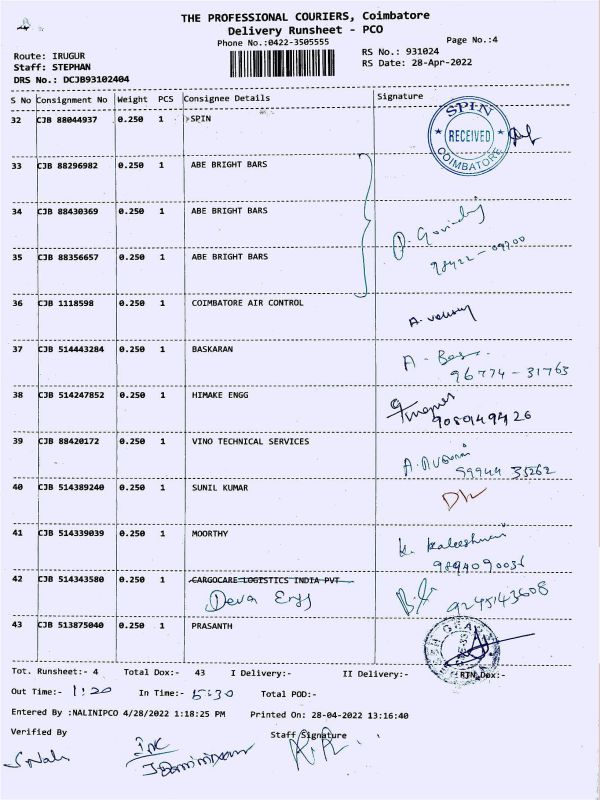 THE PROFESSIONAL COURIERS, Coimbatore
Delivery Runsheet - PCO
Phone No.:0422-3505555 Page No.:4
Route: IRUGUR RS No.: 931024
Staff: STEPHAN RS Date: 28-Apr-2022
DRS No.: DCJB93102404
S No Consignment No Weight PCS Consignee Details Signature
32 CJB 88044937 0.250 1 SPIN SPIN RECEIVED COIMBATORE
33 CJB 88296982 0.250 1 ABE BRIGHT BARS
34 CJB 88430369 0.250 1 ABE BRIGHT BARS
35 CJB 88356657 0.250 1 ABE BRIGHT BARS
36 CJB 1118598 0.250 1 COIMBATORE AIR CONTROL
37 CJB 514443284 0.250 1 BASKARAN
96774-31765
38 CJB 514247852 0.250 1 HIMAKE ENGG
9089449426
39 CJB 88420172 0.250 1 VINO TECHNICAL SERVICES
99944 35262
40 CJB 514389240 0.250 1 SUNIL KUMAR
41 CJB 514339039 0.250 1 MOORTHY K. Kaleeshwari
9894090036
42 CJB 514343580 0.250 1 CARGOCARE LOGISTICS INDIA PVT
Deva Engg 9245143608
43 CJB 513875040 0.250 1 PRASANTH
Tot. Runsheet:- 4 Total Dox:- 43 I Delivery:- II Delivery:- RTN Dox:-
Out Time:- 1:20 In Time:- 15:30 Total POD:-
Entered By :NALINIPCO 4/28/2022 1:18:25 PM Printed On: 28-04-2022 13:16:40
Verified By Staff Signature